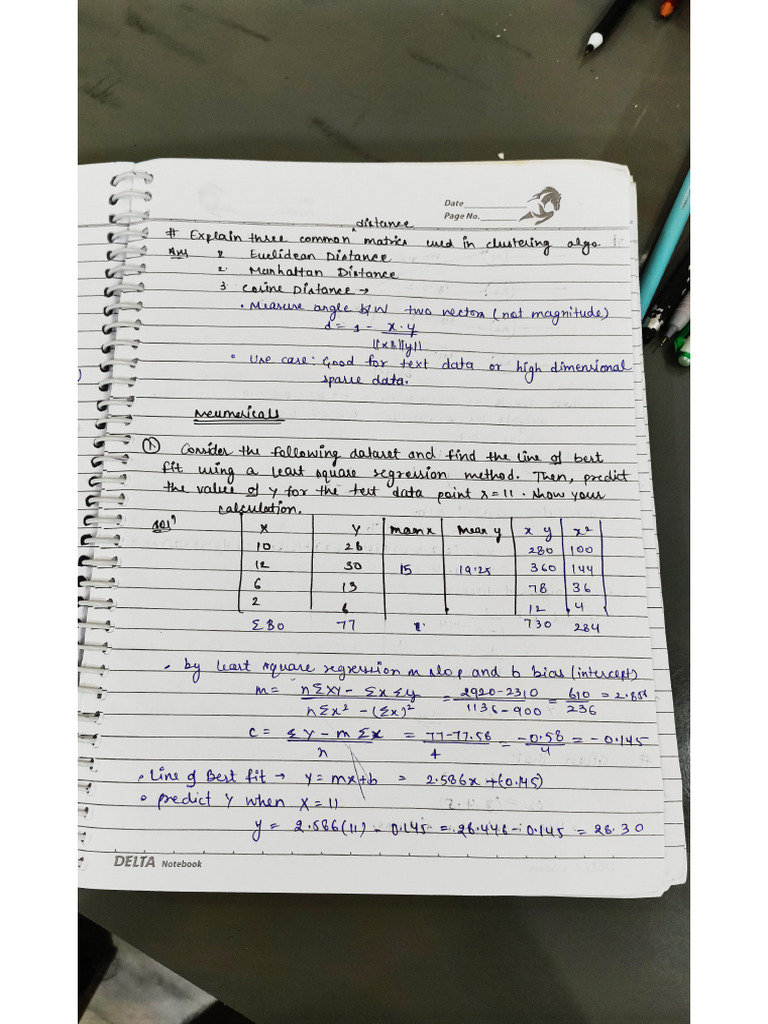 Date
Page No.
distance
# Explain three common matrics used in clustering algo.
Ans 1. Euclidean Distance
2. Manhattan Distance
3. Cosine Distance →
• Measure angle b/w two vectors (not magnitude)
d = 1 - x·y
||x||||y||
• Use case: Good for text data or high dimensional
sparse data.
Neumericals
① Consider the following dataset and find the line of best
fit using a least square regression method. Then, predict
the value of y for the test data point x = 11. show your
calculation.
solⁿ x y mean x mean y x y x²
10 28 280 100
12 30 15 19.25 360 144
6 13 78 36
2 6 12 4
Σ30 77 730 284
• by least square regression m slop and b bias (intercept)
m = nΣxy - Σx Σy = 2920-2310 = 610
nΣx² - (Σx)² 1136-900 236
c = Σy - mΣx = 77-77.58 = -0.58 = -0.145
n 4 4
• Line of Best fit → y = mx+b = 2.586x+(0.145)
• predict y when x = 11
y = 2.586(11) - 0.145 = 28.446-0.145 = 28.30
DELTA Notebook